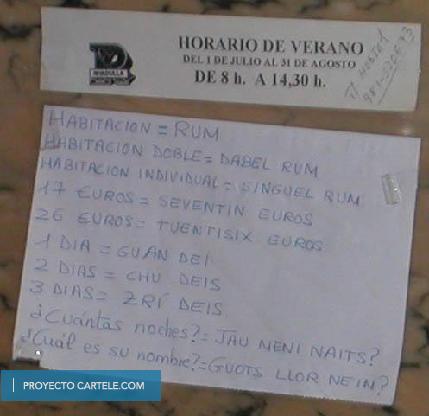 HORARIO DE VERANO
DEL 1 DE JULIO AL 31 DE AGOSTO
DE 8 h. A 14,30 h.
HABITACION = RUM
HABITACION DOBLE = DABEL RUM
HABITACION INDIVIDUAL = SINGUEL RUM
17 EUROS = SEVENTIN EUROS
26 EUROS = TUENTISIX EUROS
1 DIA = GUAN DEI
2 DIAS = CHU DEIS
3 DIAS = ZRÍ DEIS
¿Cuántas noches? = JAU MENI NAITS?
¿Cuál es su nombre? = GUOTS LLOR NEIN?
PROYECTO CARTELE.COM